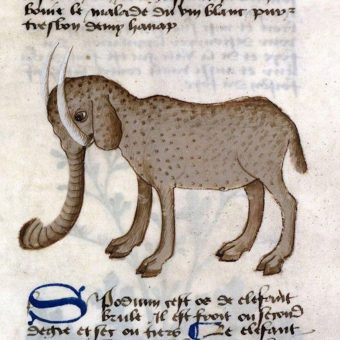 boire le malade du vin blanc pur
tresbon demy hanap
Spodium cest os de elefant
brule il est froit ou second
degre et sec ou tiers Le elefant